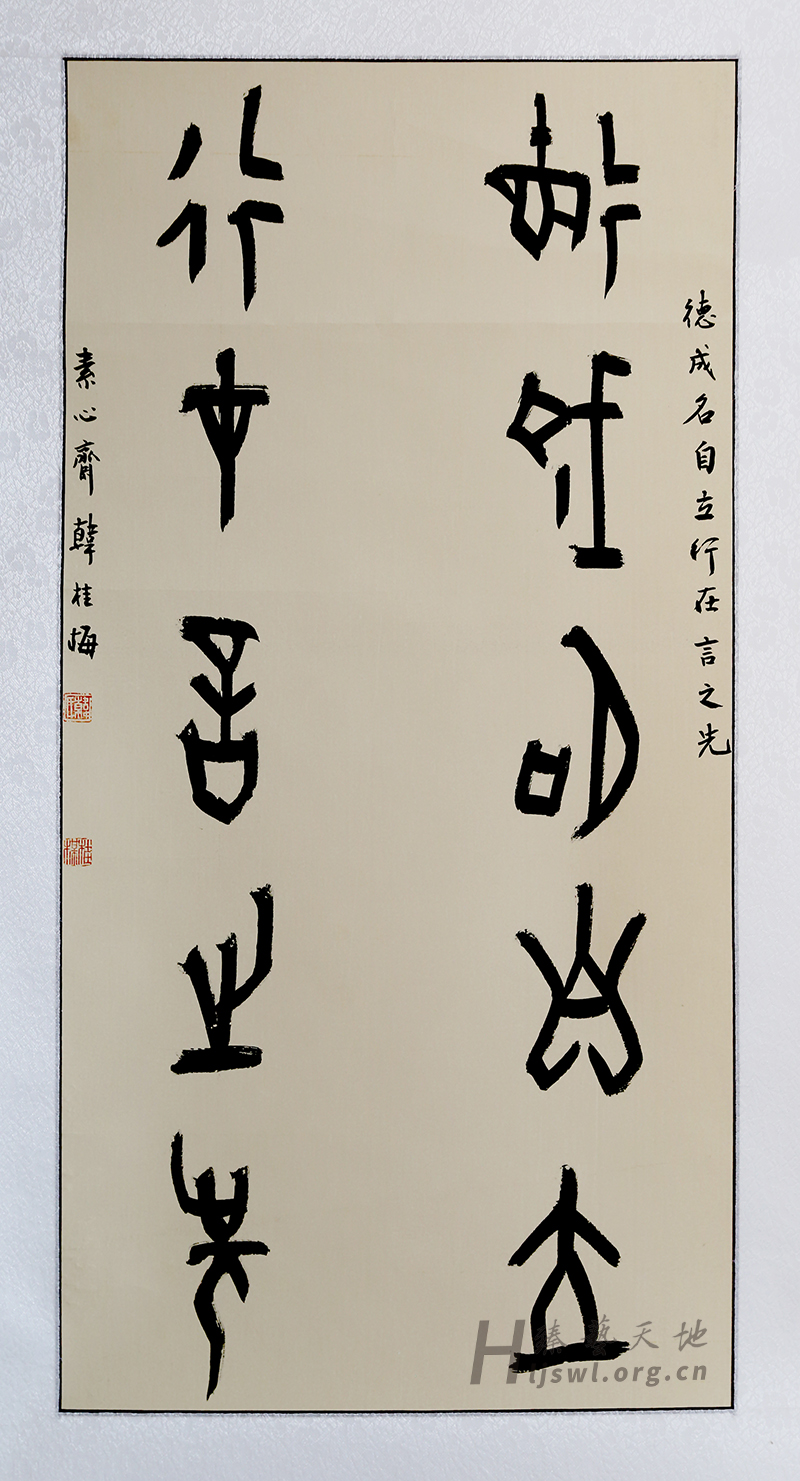 德成名自立
行在言之先
德成名自立行在言之先
素心齋 韓桂梅
臻藝天地
Hljswl.org.cn